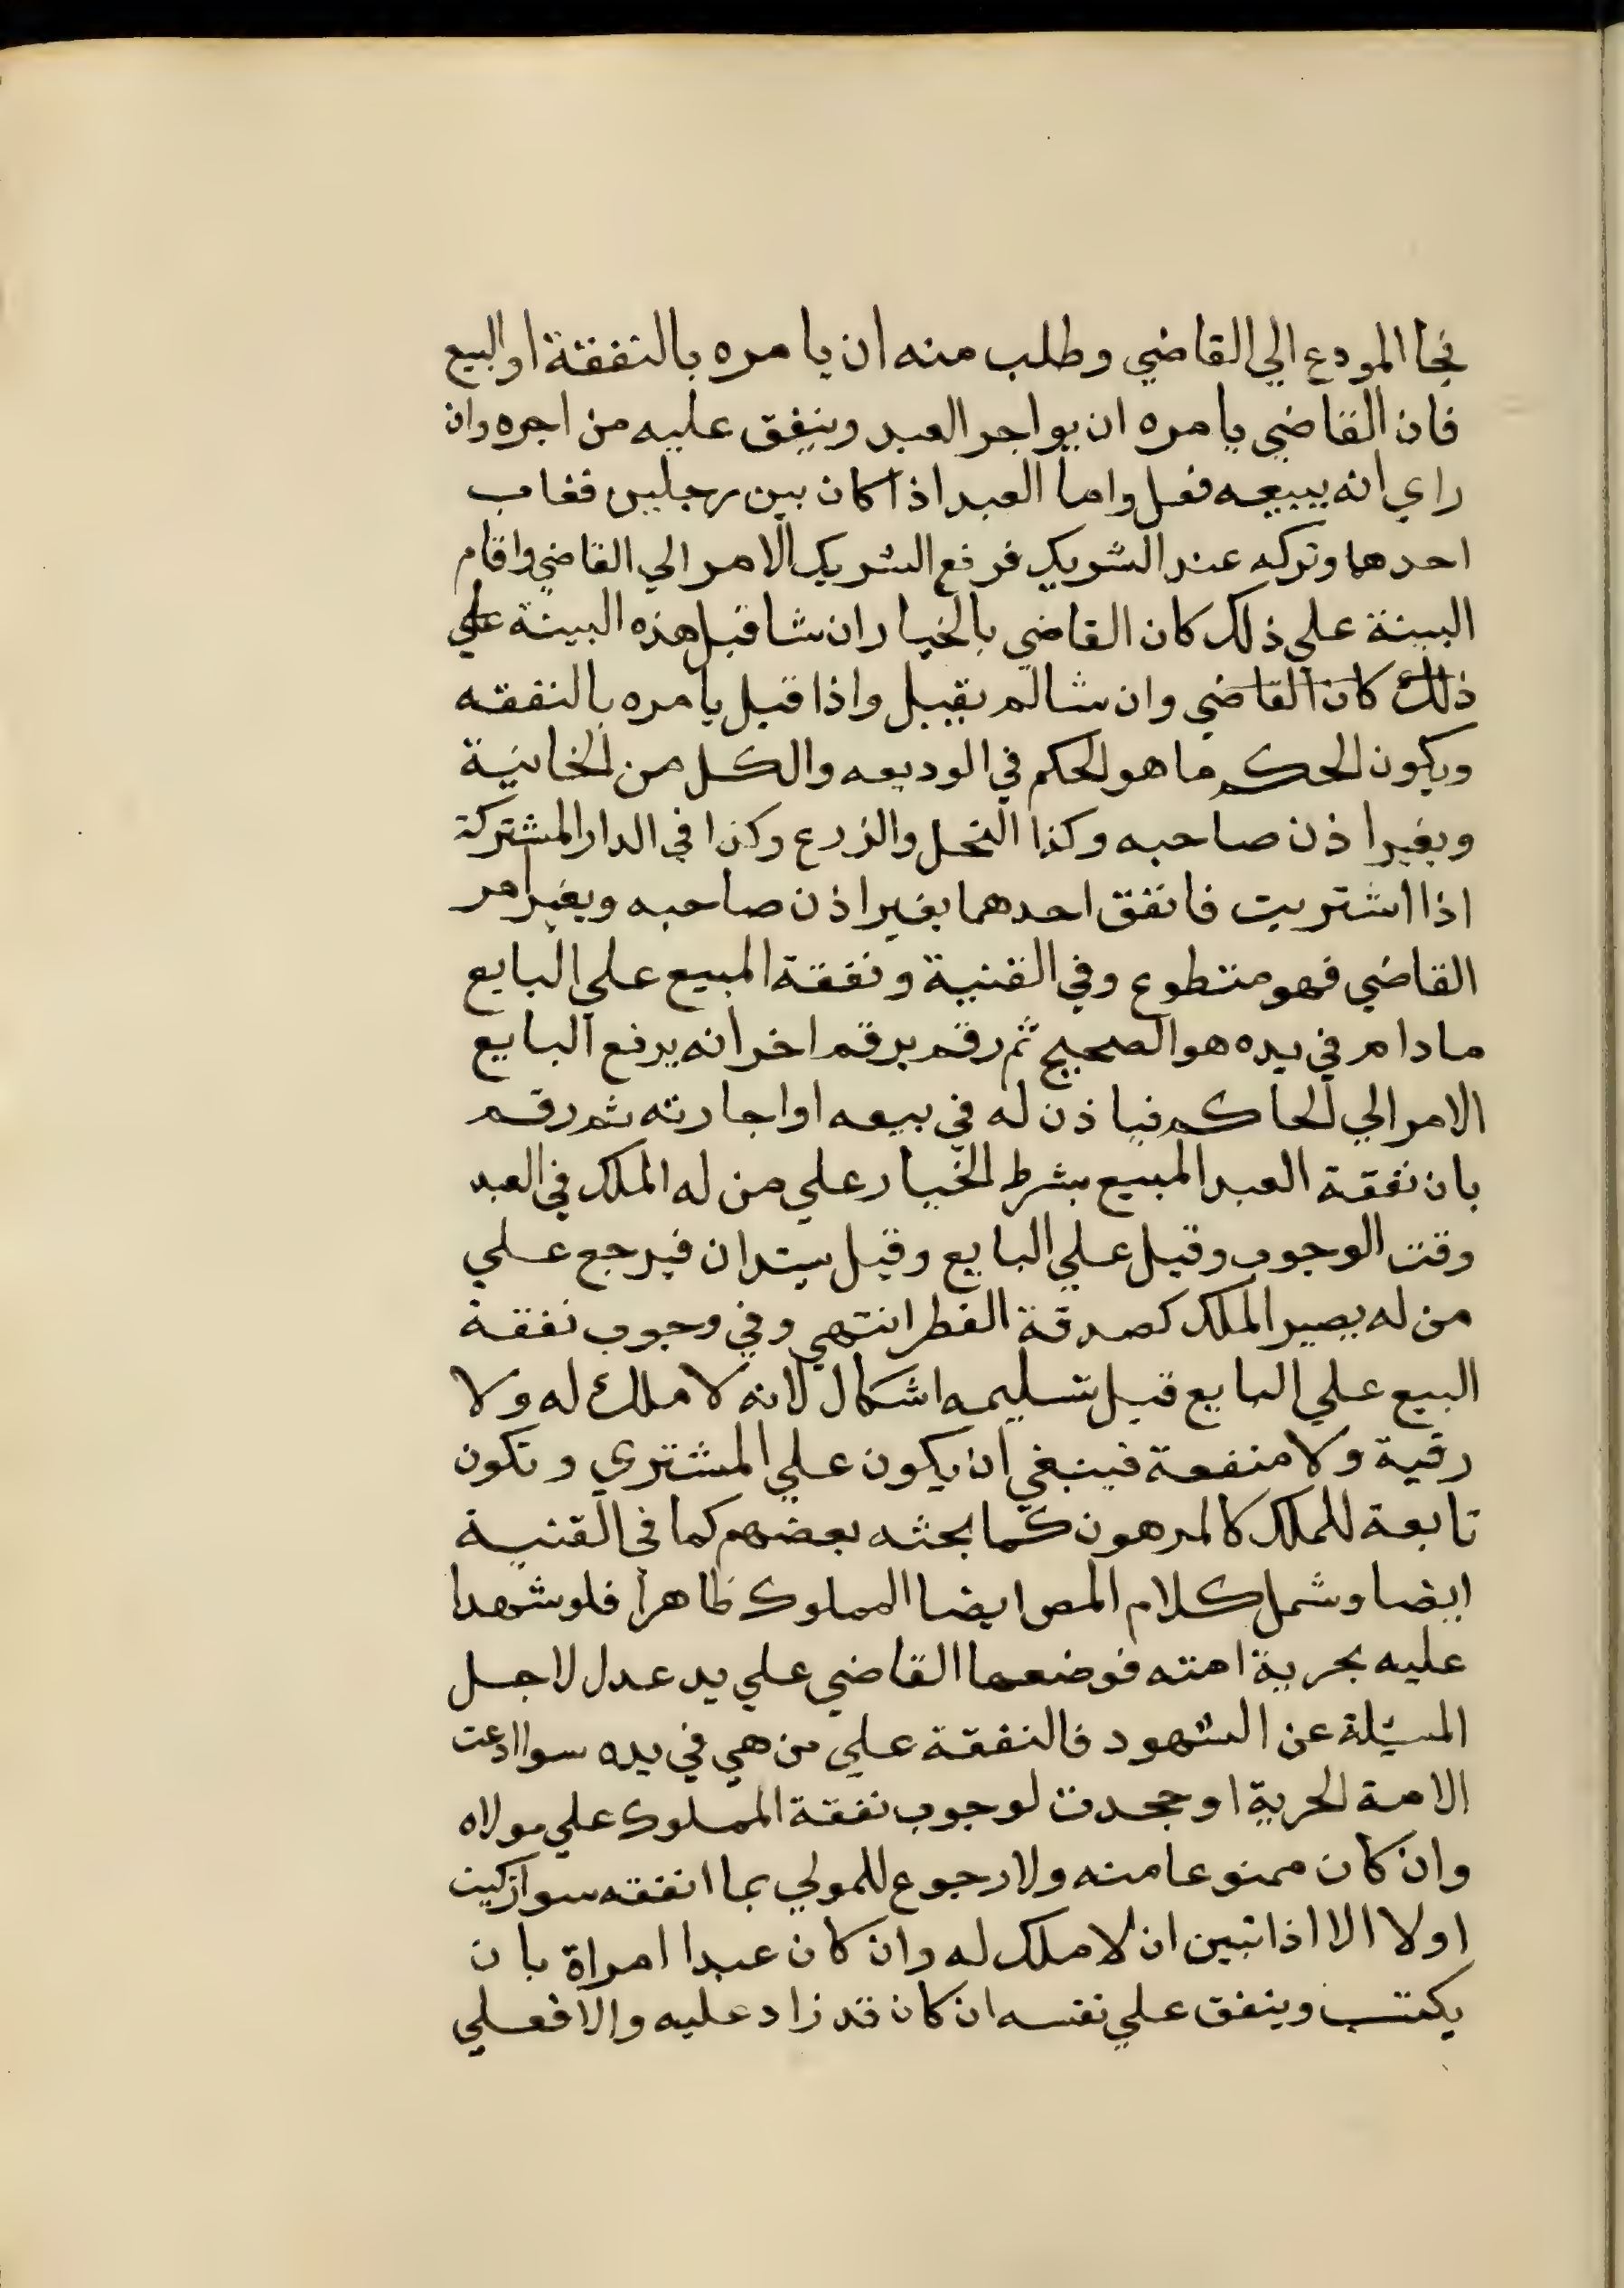 فجا المودع الي القاضي وطلب منه ان يامره بالنفقة او البيع
فان القاضي يامره ان يواجر العبد وينفق عليه من اجره وان
راي انه يبيعه فعل واما العبد اذا كان بين رجلين فغاب
احدهما وتركه عند الشريك فرفع الشريك الامر الي القاضي واقام
البينة علي ذلك كان القاضي بالخيار ان شا قبل هذه البينة علي
ذلك كان القاضي وان شا لم يقبل واذا قبل يامره بالنفقه
ويكون الحكم ما هو الحكم في الوديعه والكل من الخانية
وبغير اذن صاحبه وكذا النخل والزرع وكذا في الدار المشتركة
اذا اشتريت فانفق احدهما بغير اذن صاحبه وبغير امر
القاضي فهو متطوع وفي القنية ونفقة المبيع علي البايع
مادام في يده هو الصحيح ثم رقم برقم اخر انه يرفع البايع
الامر الي الحاكم فياذن له في بيعه او اجارته ثم رقم
بان نفقة العبد المبيع بشرط الخيار علي من له الملك في العبد
وقت الوجوب وقيل علي البايع وقيل يستدان فيرجع علي
من له يصير الملك كصدقة الفطر انتهي وفي وجوب نفقة
البيع علي البايع قبل تسليمه اشكال لانه لا ملك له ولا
رقية ولا منفعة فينبغي ان يكون علي المشتري وتكون
تابعة للملك كالمرهون كما بحثه بعضهم كما في القنية
ايضا وشمل كلام المص ايضا المملوك ظاهرا فلو شهدا
عليه بحرية امته فوضعها القاضي علي يد عدل لاجل
المسيلة عن الشهود فالنفقة علي من هي في يده سوا ادعت
الامة الحرية او جحدت لوجوب نفقة المملوك علي مولاه
وان كان ممنوعا منه ولا رجوع للمولي بما انفقه سوا زكيت
اولا الا اذا تبين ان لا ملك له وان كان عبدا امراة بان
يكتسب وينفق علي نفسه ان كان قد زاد عليه والا فعلي